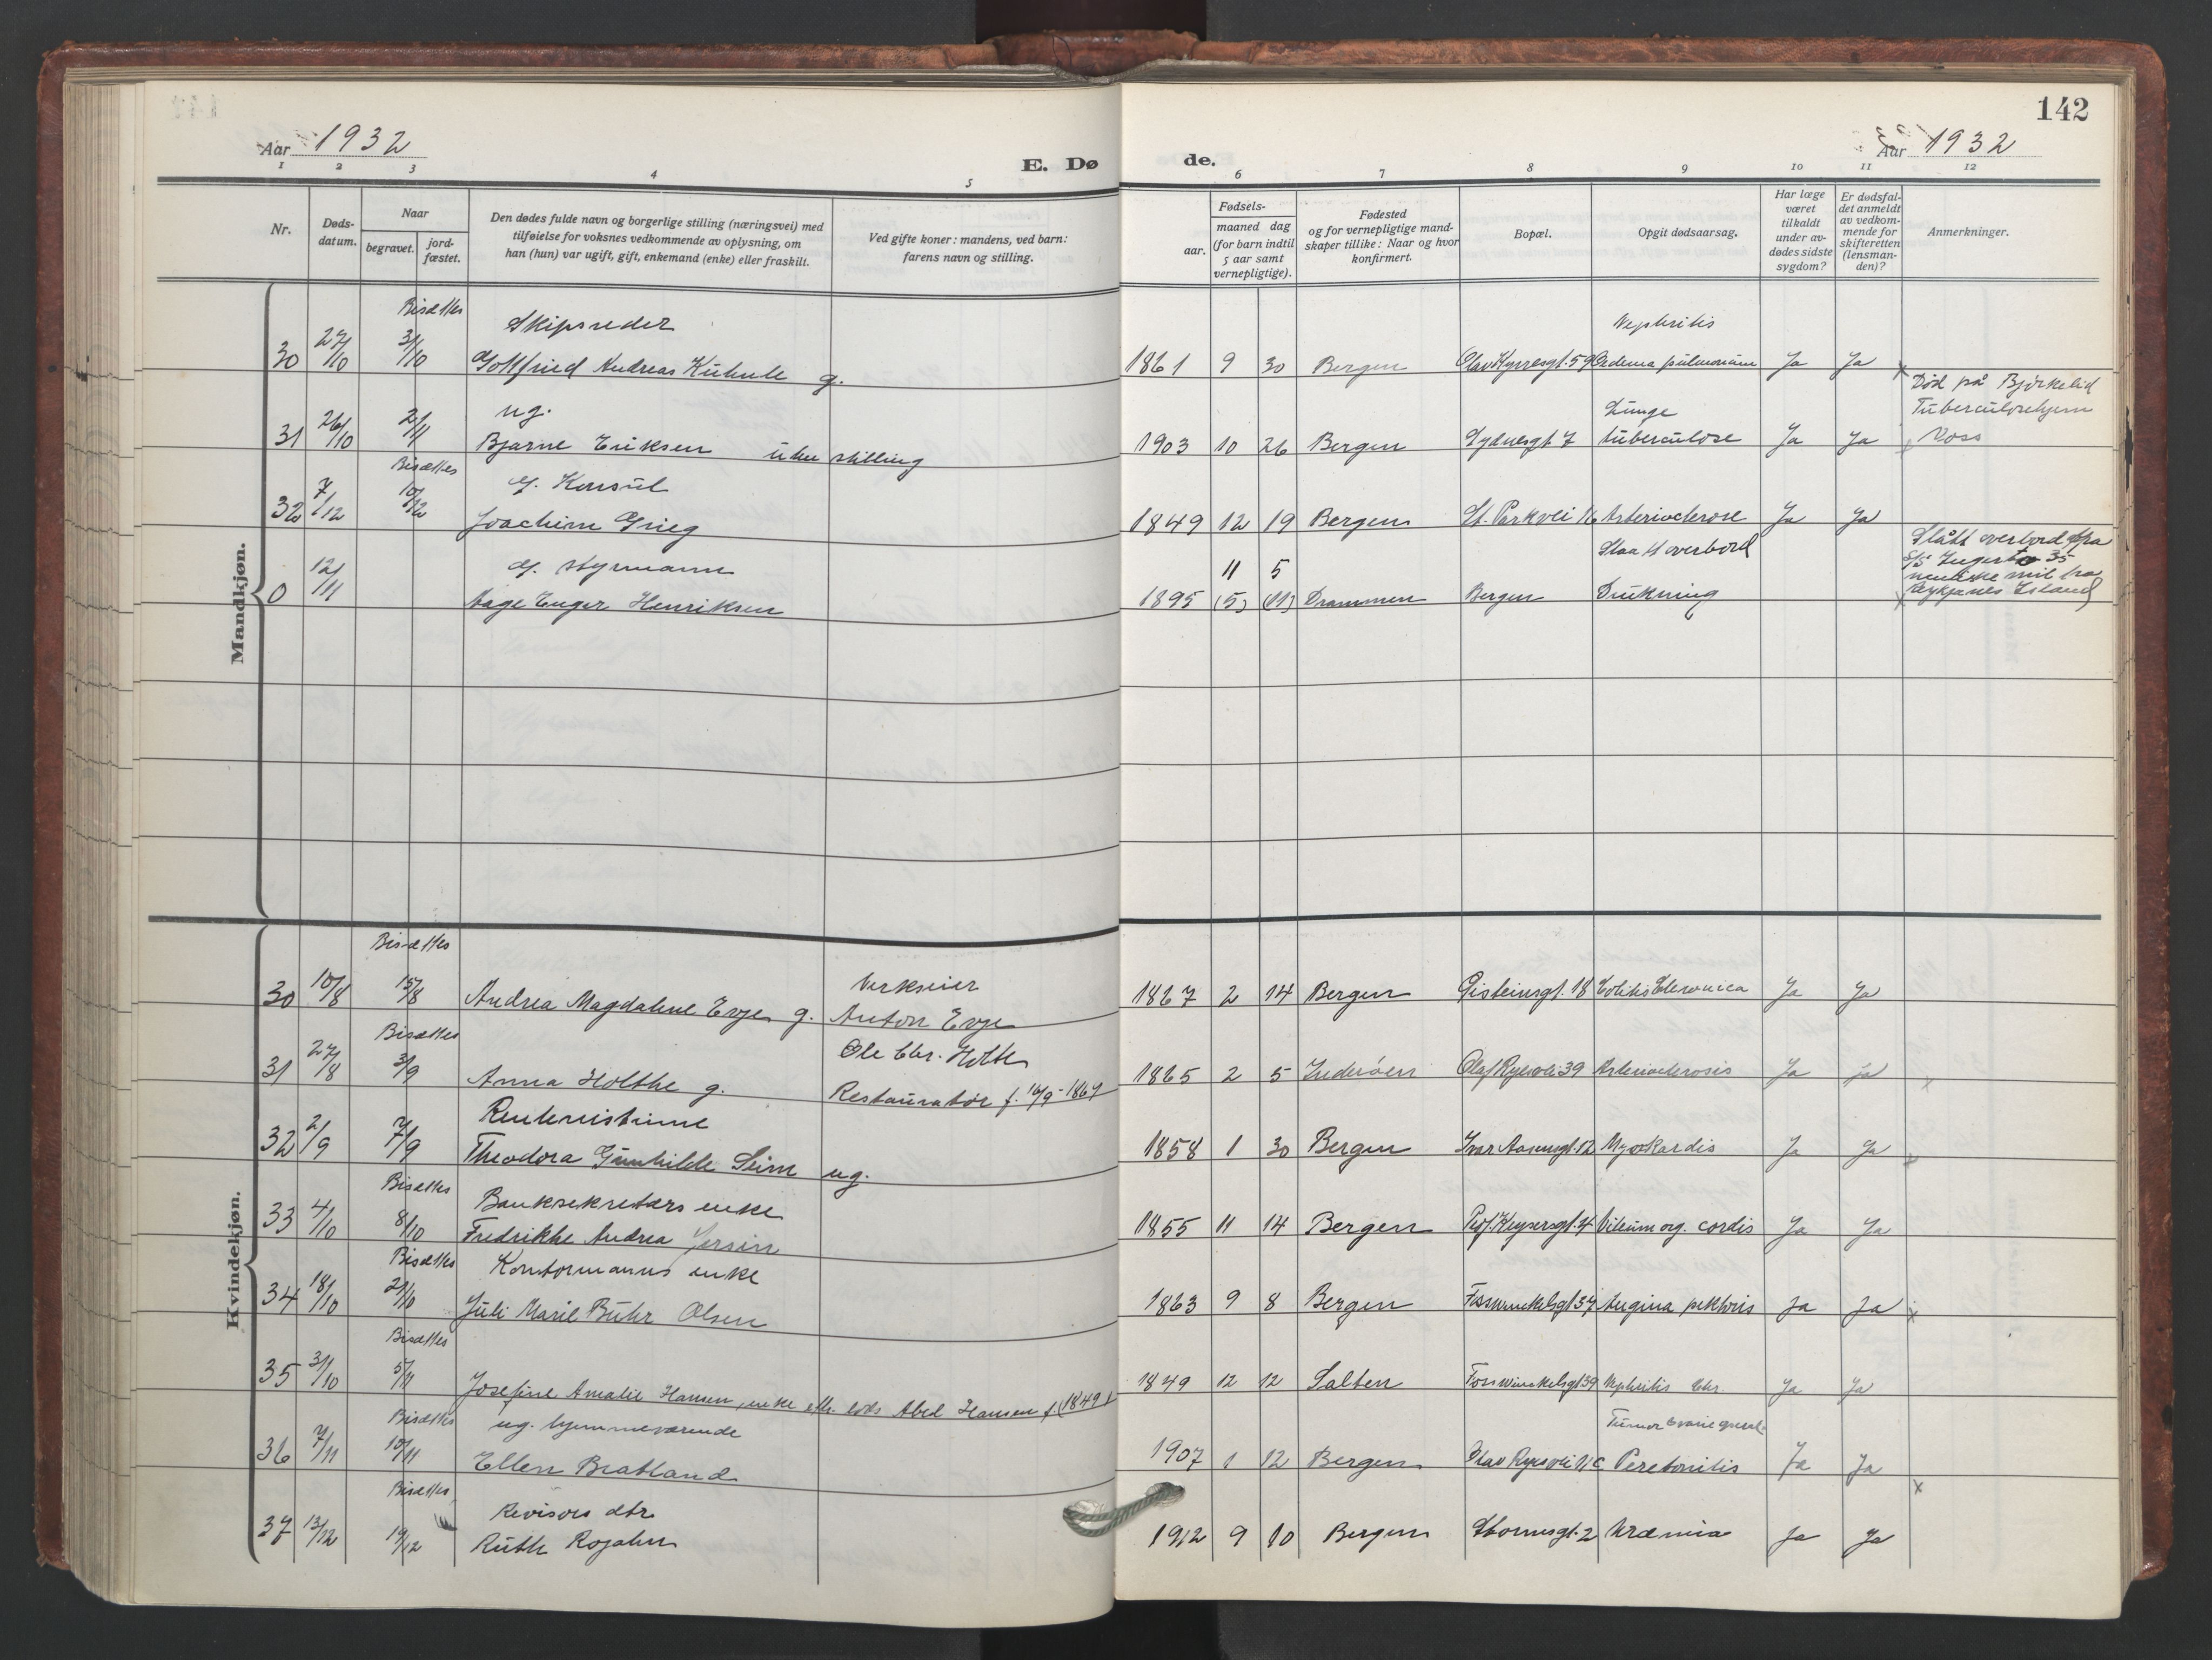 142
Aar 1932
E. Dø
de.
Aar 1932
1 2 3 4 5 6 7 8 9 10 11 12
Nr.
Døds-
datum.
Naar
begravet.
jord-
fæstet.
Den dødes fulde navn og borgerlige stilling (næringsvei) med
tilføielse for voksnes vedkommende av oplysning, om
han (hun) var ugift, gift, enkemand (enke) eller fraskilt.
Ved gifte koner: mandens, ved barn:
farens navn og stilling.
aar.
Fødsels-
maaned dag
(for barn indtil
5 aar samt
vernepligtige).
Fødested
og for vernepligtige mand-
skaper tillike: Naar og hvor
konfirmert.
Bopæl.
Opgit dødsaarsag.
Har læge
været
tilkaldt
under av-
dødes sidste
sygdom?
Er dødsfal-
det anmeldt
av vedkom-
mende for
skifteretten
(lensman-
den)?
Anmerkninger.
Mandkjøn.
Bisættes Skipsreder Nephritis
30 27/10 31/10 Gottfried Andreas Kuhnle g. 1861 9 30 Bergen Olav Kyrresgt. 59 Oedema pulmonum Ja Ja x
ug. Lunge Død på Bjørkelid
Tuberculosehjem
31 26/10 2/11 Bjarne Eriksen uten stilling 1903 10 26 Bergen Sydnesgt 7 tuberculose Ja Ja Voss
Bisættes g. Konsul
32 7/12 10/12 Joachim Grieg 1849 12 19 Bergen St. Parkvei Arteriosclerose Ja Ja
g. styrmann 11 5 Slaatt overbord Slått overbord fra
S/S Ingerto 35
0 12/11 Aage Enger Henriksen 1895 (5) (11) Drammen Bergen Drukning mil fra
Reykjanes Island
Kvindekjøn.
Bisættes Verkseier
30 10/8 15/8 Andrea Magdalene Evje g. Anton Evje 1867 2 14 Bergen Gisteinsgt. 18 Colitis Chronica Ja Ja
Bisættes Ole Chr. Holthe
31 27/8 3/9 Anna Holthe g. Restauratør f. 16/9-1867 1865 2 5 Inderøen Olaf Ryesvei 39 Arteriosclerosis Ja Ja x
Rentenistinne
32 2/9 7/9 Theodora Gunhilde Seim ug. 1858 1 30 Bergen Ivar Aasensgt. 12 Myokardis Ja Ja x
Bisættes Banksekretærs enke
33 4/10 8/10 Fredrikke Andrea Jersin 1855 11 14 Bergen Prof. Keysersgt. Vitium org. cordis Ja Ja
Bisættes Kontormanns enke
34 18/10 21/10 Juli Marie Buhr Olsen 1863 9 8 Bergen Fosswinckelsgt 37 Angina pektoris Ja Ja x
Bisættes
35 31/10 5/11 Josefine Amalie Hansen, enke eftr. lods Abel Hansen f. (1849) 1849 12 12 Salten Fosswinckelsgt 39 Nephritis Chr. Ja Ja
Bisættes ug. hjemmeværende Tumor
36 7/11 10/11 Ellen Bratland 1907 1 12 Bergen Olav Ryesvei 11c Peretonitis Ja Ja
x
Bisættes Revisors dtr.
37 13/12 19/12 Ruth Rojahn 1912 9 10 Bergen Stormsgt. 2 Uræmia Ja Ja